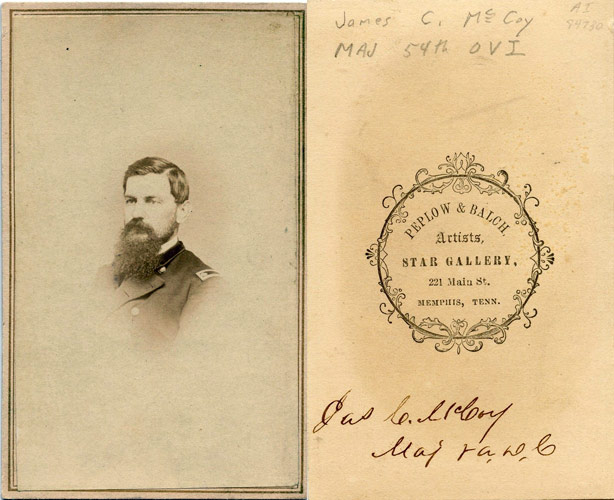 James C. McCoy
MAJ 54th OVI
AI
PEPLOW & BALCH,
Artists,
STAR GALLERY,
221 Main St.
MEMPHIS, TENN.
Jas C. McCoy
Maj &a, d, C